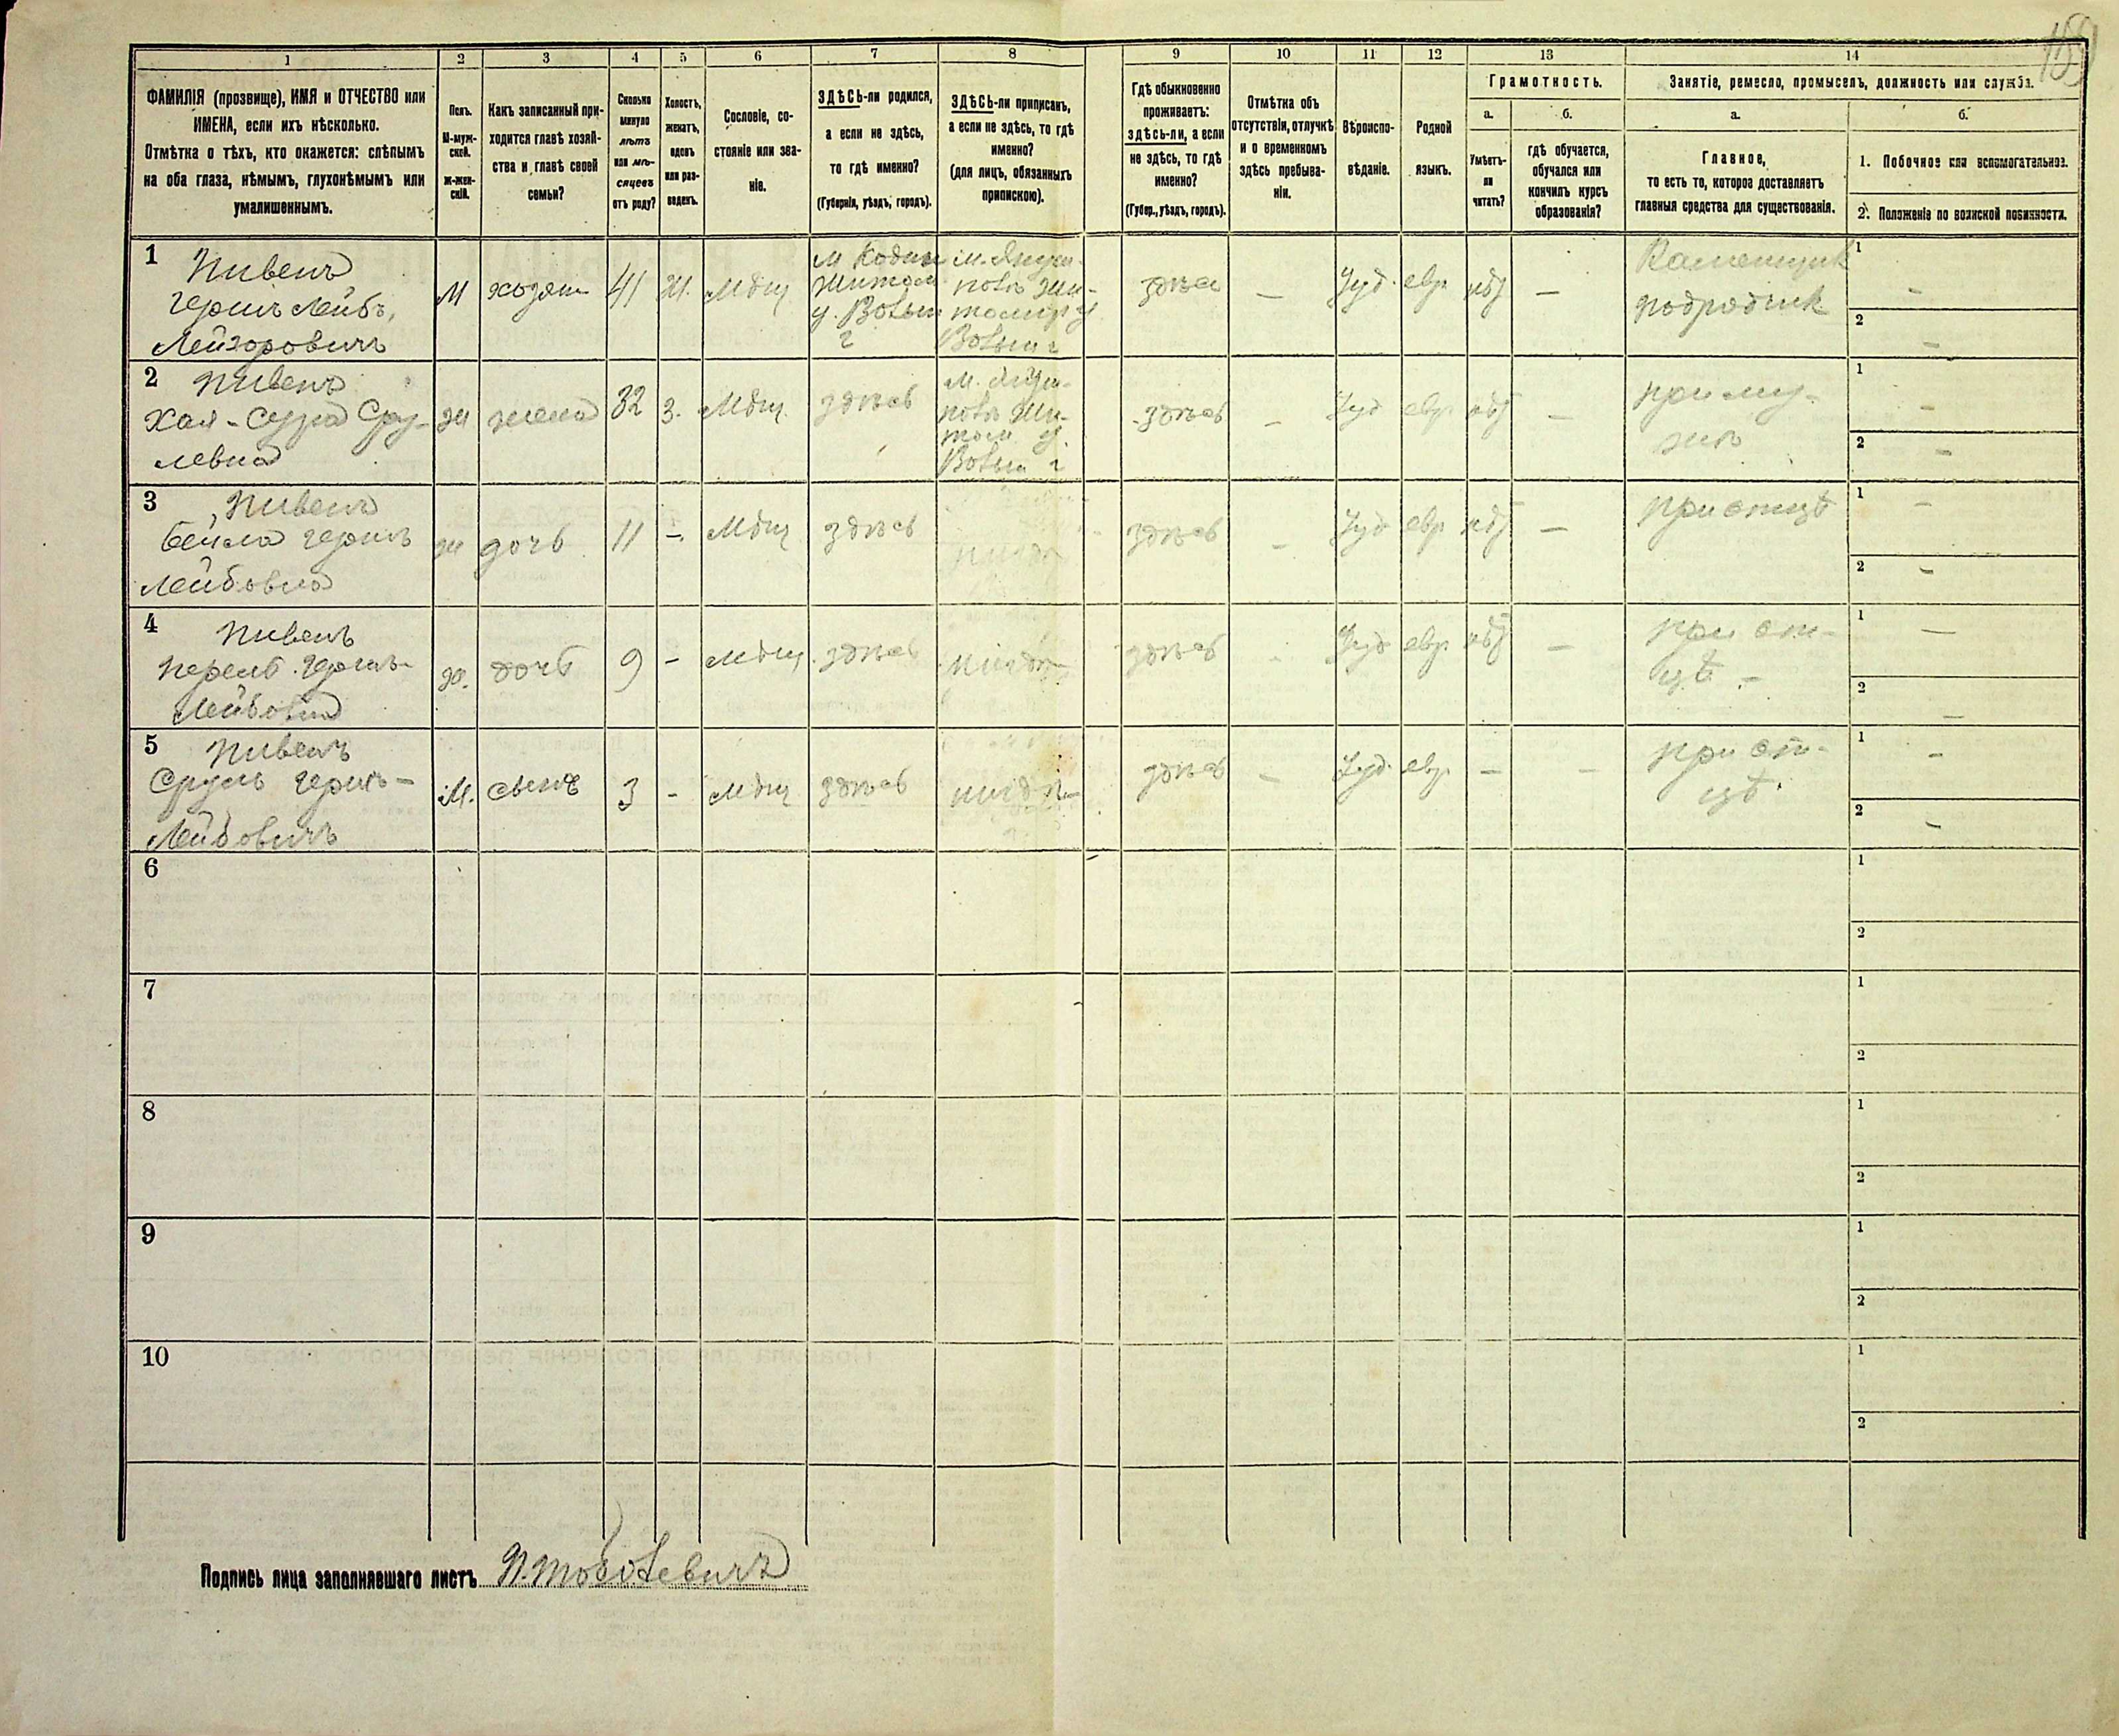 1
2
3
4
5
6
7
8
9
10
11
12
13
14
ФАМИЛІЯ (прозвище), ИМЯ и ОТЧЕСТВО или
ИМЕНА, если ихъ нѣсколько.
Отмѣтка о тѣхъ, кто окажется: слѣпымъ
на оба глаза, нѣмымъ, глухонѣмымъ или
умалишеннымъ.
Полъ.
М-муж-
ской.
Ж-жен-
скій.
Какъ записанный при-
ходится главѣ хозяй-
ства и главѣ своей
семьи?
Сколько
минуло
лѣтъ
или мѣ-
сяцевъ
отъ роду?
Холостъ,
женатъ,
вдовъ
или раз-
веденъ.
Сословіе, со-
стояніе или зва-
ніе.
ЗДѢСЬ-ли родился,
а если не здѣсь,
то гдѣ именно?
(Губернія, уѣздъ, городъ).
ЗДѢСЬ-ли приписанъ,
а если не здѣсь, то гдѣ
именно?
(для лицъ, обязанныхъ
припискою).
Гдѣ обыкновенно
проживаетъ:
здѣсь-ли, а если
не здѣсь, то гдѣ
именно?
(Губер., уѣздъ, городъ).
Отмѣтка объ
отсутствіи, отлучкѣ
и о временномъ
здѣсь пребыва-
ніи.
Вѣроиспо-
вѣданіе.
Родной
языкъ.
Грамотность.
а.
Умѣетъ-
ли
читать?
б.
гдѣ обучается,
обучался или
кончилъ курсъ
образованія?
Занятіе, ремесло, промыселъ, должность или служба.
а.
Главное,
то есть то, которое доставляетъ
главныя средства для существованія.
б.
1. Побочное или вспомогательное.
2. Положеніе по воинской повинности.
1 Пивень
Гершъ Лейбъ,
Лейзоровичъ
М
хозяин
41
Ж.
Мѣщ
м Кодни
Житом
у. Волын
г
здѣсь
—
Іуд.
евр.
нѣт
—
Каменщик
подрядчик
1 —
2 —
2 Пивень
Хая-Сура Сру-
левна
ж
жена
32
З.
Мѣщ.
здѣсь
здѣсь
—
Іуд
евр
нѣт
—
при му-
жѣ
1 —
2 —
3 Пивень
Бейла Гершъ
Лейбовна
ж
дочь
11
—
Мѣщ
здѣсь
здѣсь
—
Іуд
евр
нѣт
—
при отцѣ
1 —
2 —
4 Пивень
Перель Гершъ-
Лейбовна
ж.
дочь
9
—
Мѣщ.
здѣсь
здѣсь
Іуд
евр.
нѣт
—
при от-
цѣ —
1 —
2 —
5 Пивень
Сруль Гершъ-
Лейбовичъ
М.
сынъ
3
—
Мѣщ
здѣсь
здѣсь
—
Іуд.
евр.
—
—
при от-
цѣ.
1 —
2 —
6
1
2
7
1
2
8
1
2
9
1
2
10
1
2
Подпись лица заполнявшаго листъ